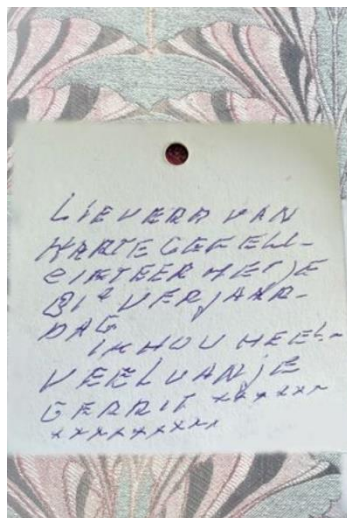 LIEVERD VAN
HARTE GEFELI-
CITEERD MET JE
81e VERJAAR-
DAG
IK HOU HEEL-
VEEL VAN JE
GERRIT xxxxxx
xxxxxxxxx